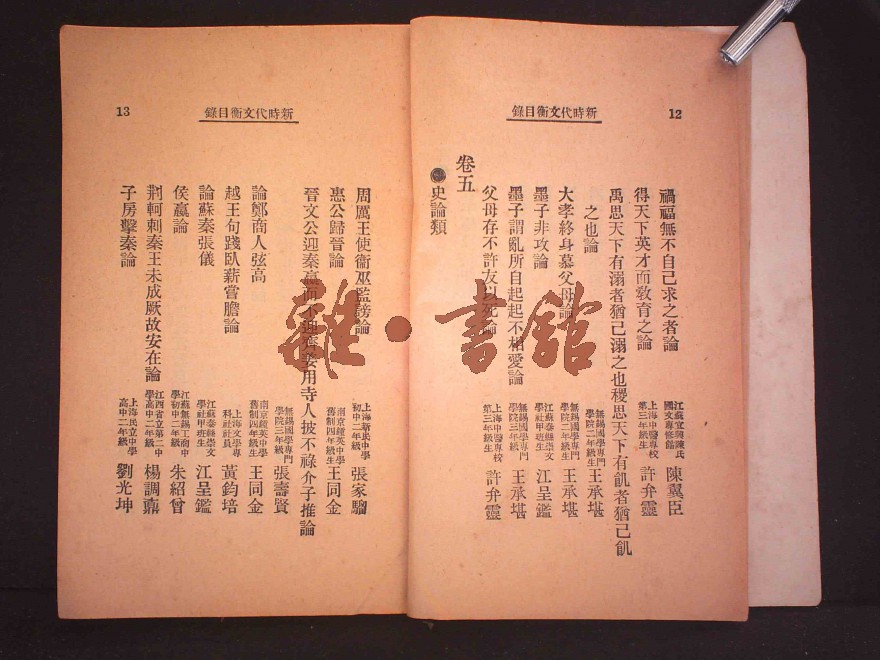 12
新時代文衡目錄
禍福無不自己求之者論 江蘇宜興陳氏國文專修館 陳翼臣
得天下英才而敎育之論 上海中醫專校第三年級 許弁靈
禹思天下有溺者猶己溺之也稷思天下有飢者猶己飢
之也論 無錫國學專門學院二年級生 王承堪
大孝終身慕父母論 無錫國學專門學院二年級生 王承堪
墨子非攻論 江蘇泰縣崇文學社甲班生 江呈鑑
墨子謂亂所自起起不相愛論 無錫國學專門學院二年級 王承堪
父母存不許友以死論 上海中醫專校第三年級生 許弁靈
卷五
史論類
13
新時代文衡目錄
周厲王使衞巫監謗論 上海新民中學初中二年級 張家騮
惠公歸晉論 南京鍾英中學舊制四年級生 王同金
晉文公迎秦嬴而不迎齊姜用寺人披不祿介子推論
無錫國學專門學院三年級 張壽賢
論鄭商人弦高 南京鍾英中學舊制四年級生 王同金
越王句踐臥薪嘗膽論 上海文學專科社社員 黃鈞培
論蘇秦張儀 江蘇泰縣崇文學社甲班生 江呈鑑
侯嬴論 江蘇無錫工商中學初中二年級 朱紹曾
荆軻刺秦王未成厥故安在論 江西省立第二中學高中二年級 楊調鼒
子房擊秦論 上海民立中學高中二年級 劉光坤
雜·書館